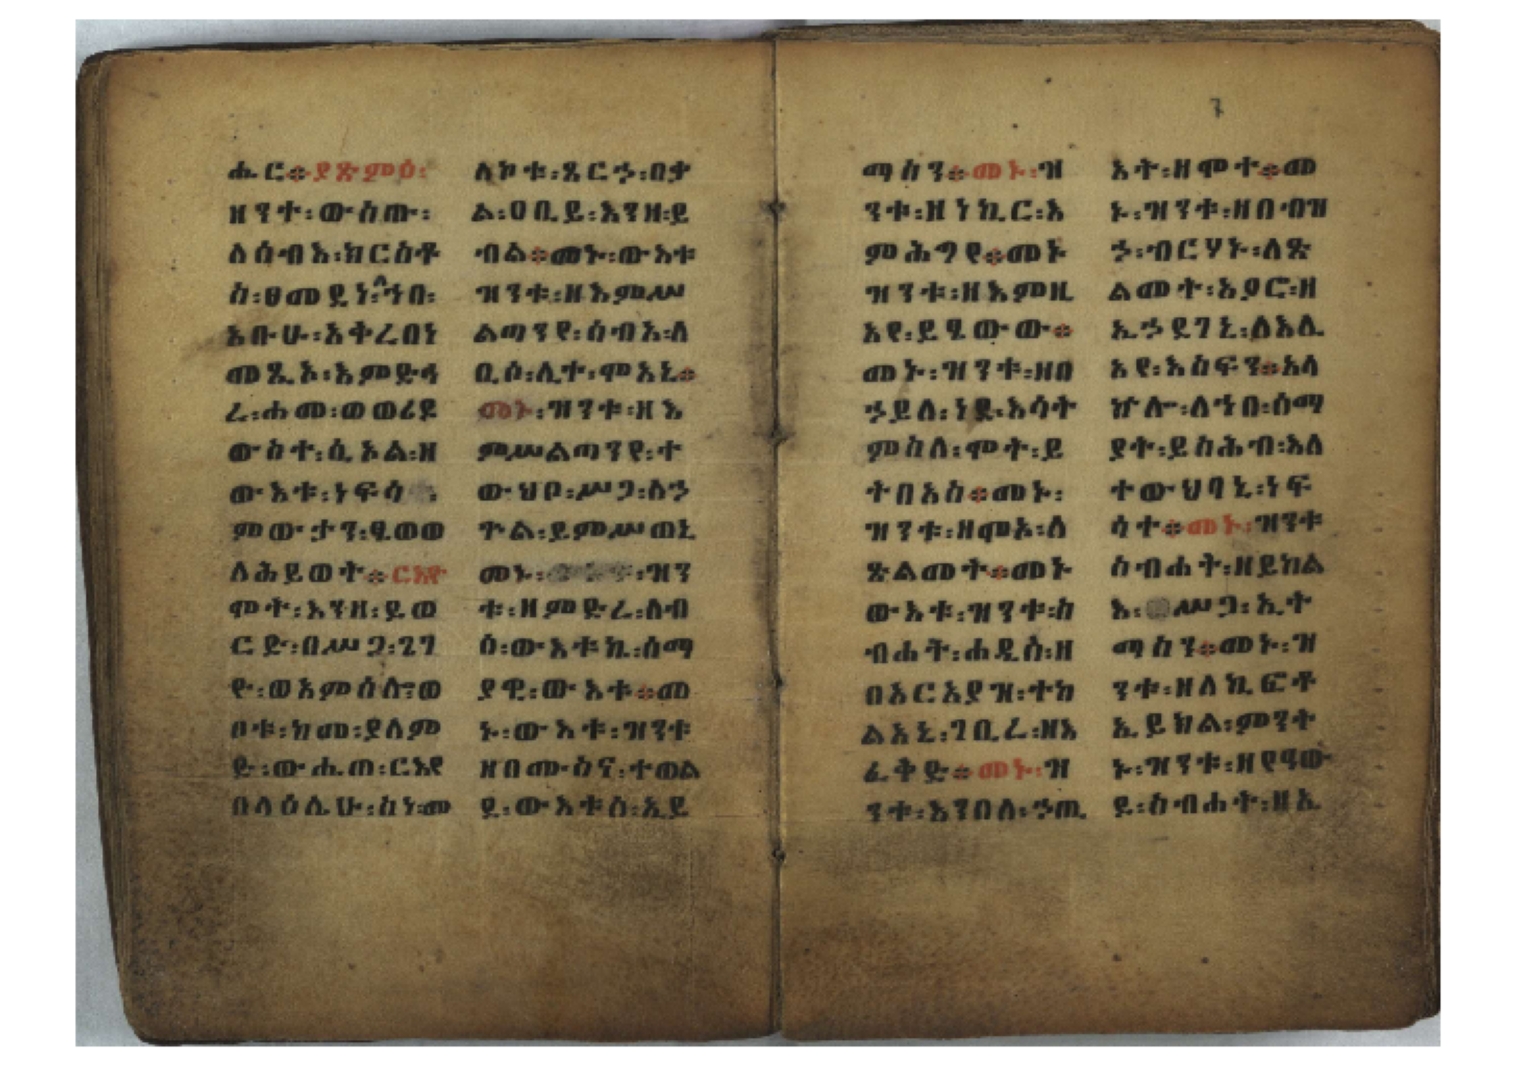 ሐር፨ያጽምዑ፡
ዘንተ፡ውስጡ፡
ለሰብእ፡ክርስቶ
ስ፡ፀመደነ፡ኀበ፡
አቡሁ፡አቅረበነ
መጺኦ፡እምድኅ
ረ፡ሐመ፡ወወሪዶ
ውስተ፡ሲኦል፡ዘ
ውእቱ፡ነፍሳ
ምውታን፡ዒወወ
ለሕይወት፨ርእዮ
ሞት፡እንዘ፡ይወ
ርድ፡በሥጋ፡ጎጎ
ዮ፡ወእምሰለ፡ወ
ቦቱ፡ከመ፡ያለም
ድ፡ውሒጠ፡ርእየ
በላዕሌሁ፡ስነ፡መ
ለኮቱ፡ጸርኀ፡በቃ
ል፡ዐቢይ፡እንዘ፡ይ
ብል፨መኑ፡ውእቱ
ዝንቱ፡ዘእምሥ
ልጣንየ፡ሰብእ፡ለ
ቢሶ፡ሊተ፡ሞአኒ፨
መኑ፡ዝንቱ፡ዘእ
ምሥልጣንየ፡ተ
ውህቦ፡ሥጋ፡ስኅ
ጕል፡ይምሥወኒ
መኑ፡ዝን
ቱ፡ዘምድረ፡ለብ
ሰ፡ውእቱኒ፡ሰማ
ያዊ፡ውእቱ፨መ
ኑ፡ውእቱ፡ዝንቱ
ዘበሙስና፡ተወል
ደ፡ውእቱስ፡ኢይ
ማስን፨መኑ፡ዝ
ንቱ፡ዘነኪር፡እ
ምሕግየ፨መኑ
ዝንቱ፡ዘእምዚ
አየ፡ይፄውው፨
መኑ፡ዝንቱ፡ዘበ
ኃይለ፡ነደ፡እሳት
ምስለ፡ሞት፡ይ
ትበአስ፨መኑ፡
ዝንቱ፡ዘሞአ፡ለ
ጽልመት፨መኑ
ውእቱ፡ዝንቱ፡ስ
ብሐት፡ሐዲስ፡ዘ
በአርአያዝ፡ተከ
ልአኒ፡ገቢረ፡ዘእ
ፈቅድ፨መኑ፡ዝ
ንቱ፡እንበለ፡ኃጢ
አት፡ዘሞተ፨መ
ኑ፡ዝንቱ፡ዘበብዝ
ኃ፡ብርሃኑ፡ለጽ
ልመት፡አያሮ፡ዘ
ኢኃደገኒ፡ለእሊ
አየ፡እስፍን፨አላ
ኵሎ፡ለኀበ፡ሰማ
ያት፡ይስሕብ፡እለ
ተውህባኒ፡ነፍ
ሳተ፨መኑ፡ዝንቱ
ስብሐት፡ዘይከል
እ፡ሥጋ፡ኢት
ማስን፨መኑ፡ዝ
ንቱ፡ዘለኪፎቶ
ኢይክል፡ምንት
ኑ፡ዝንቱ፡ዘየዓው
ደ፡ስብሐት፡ዘኢ